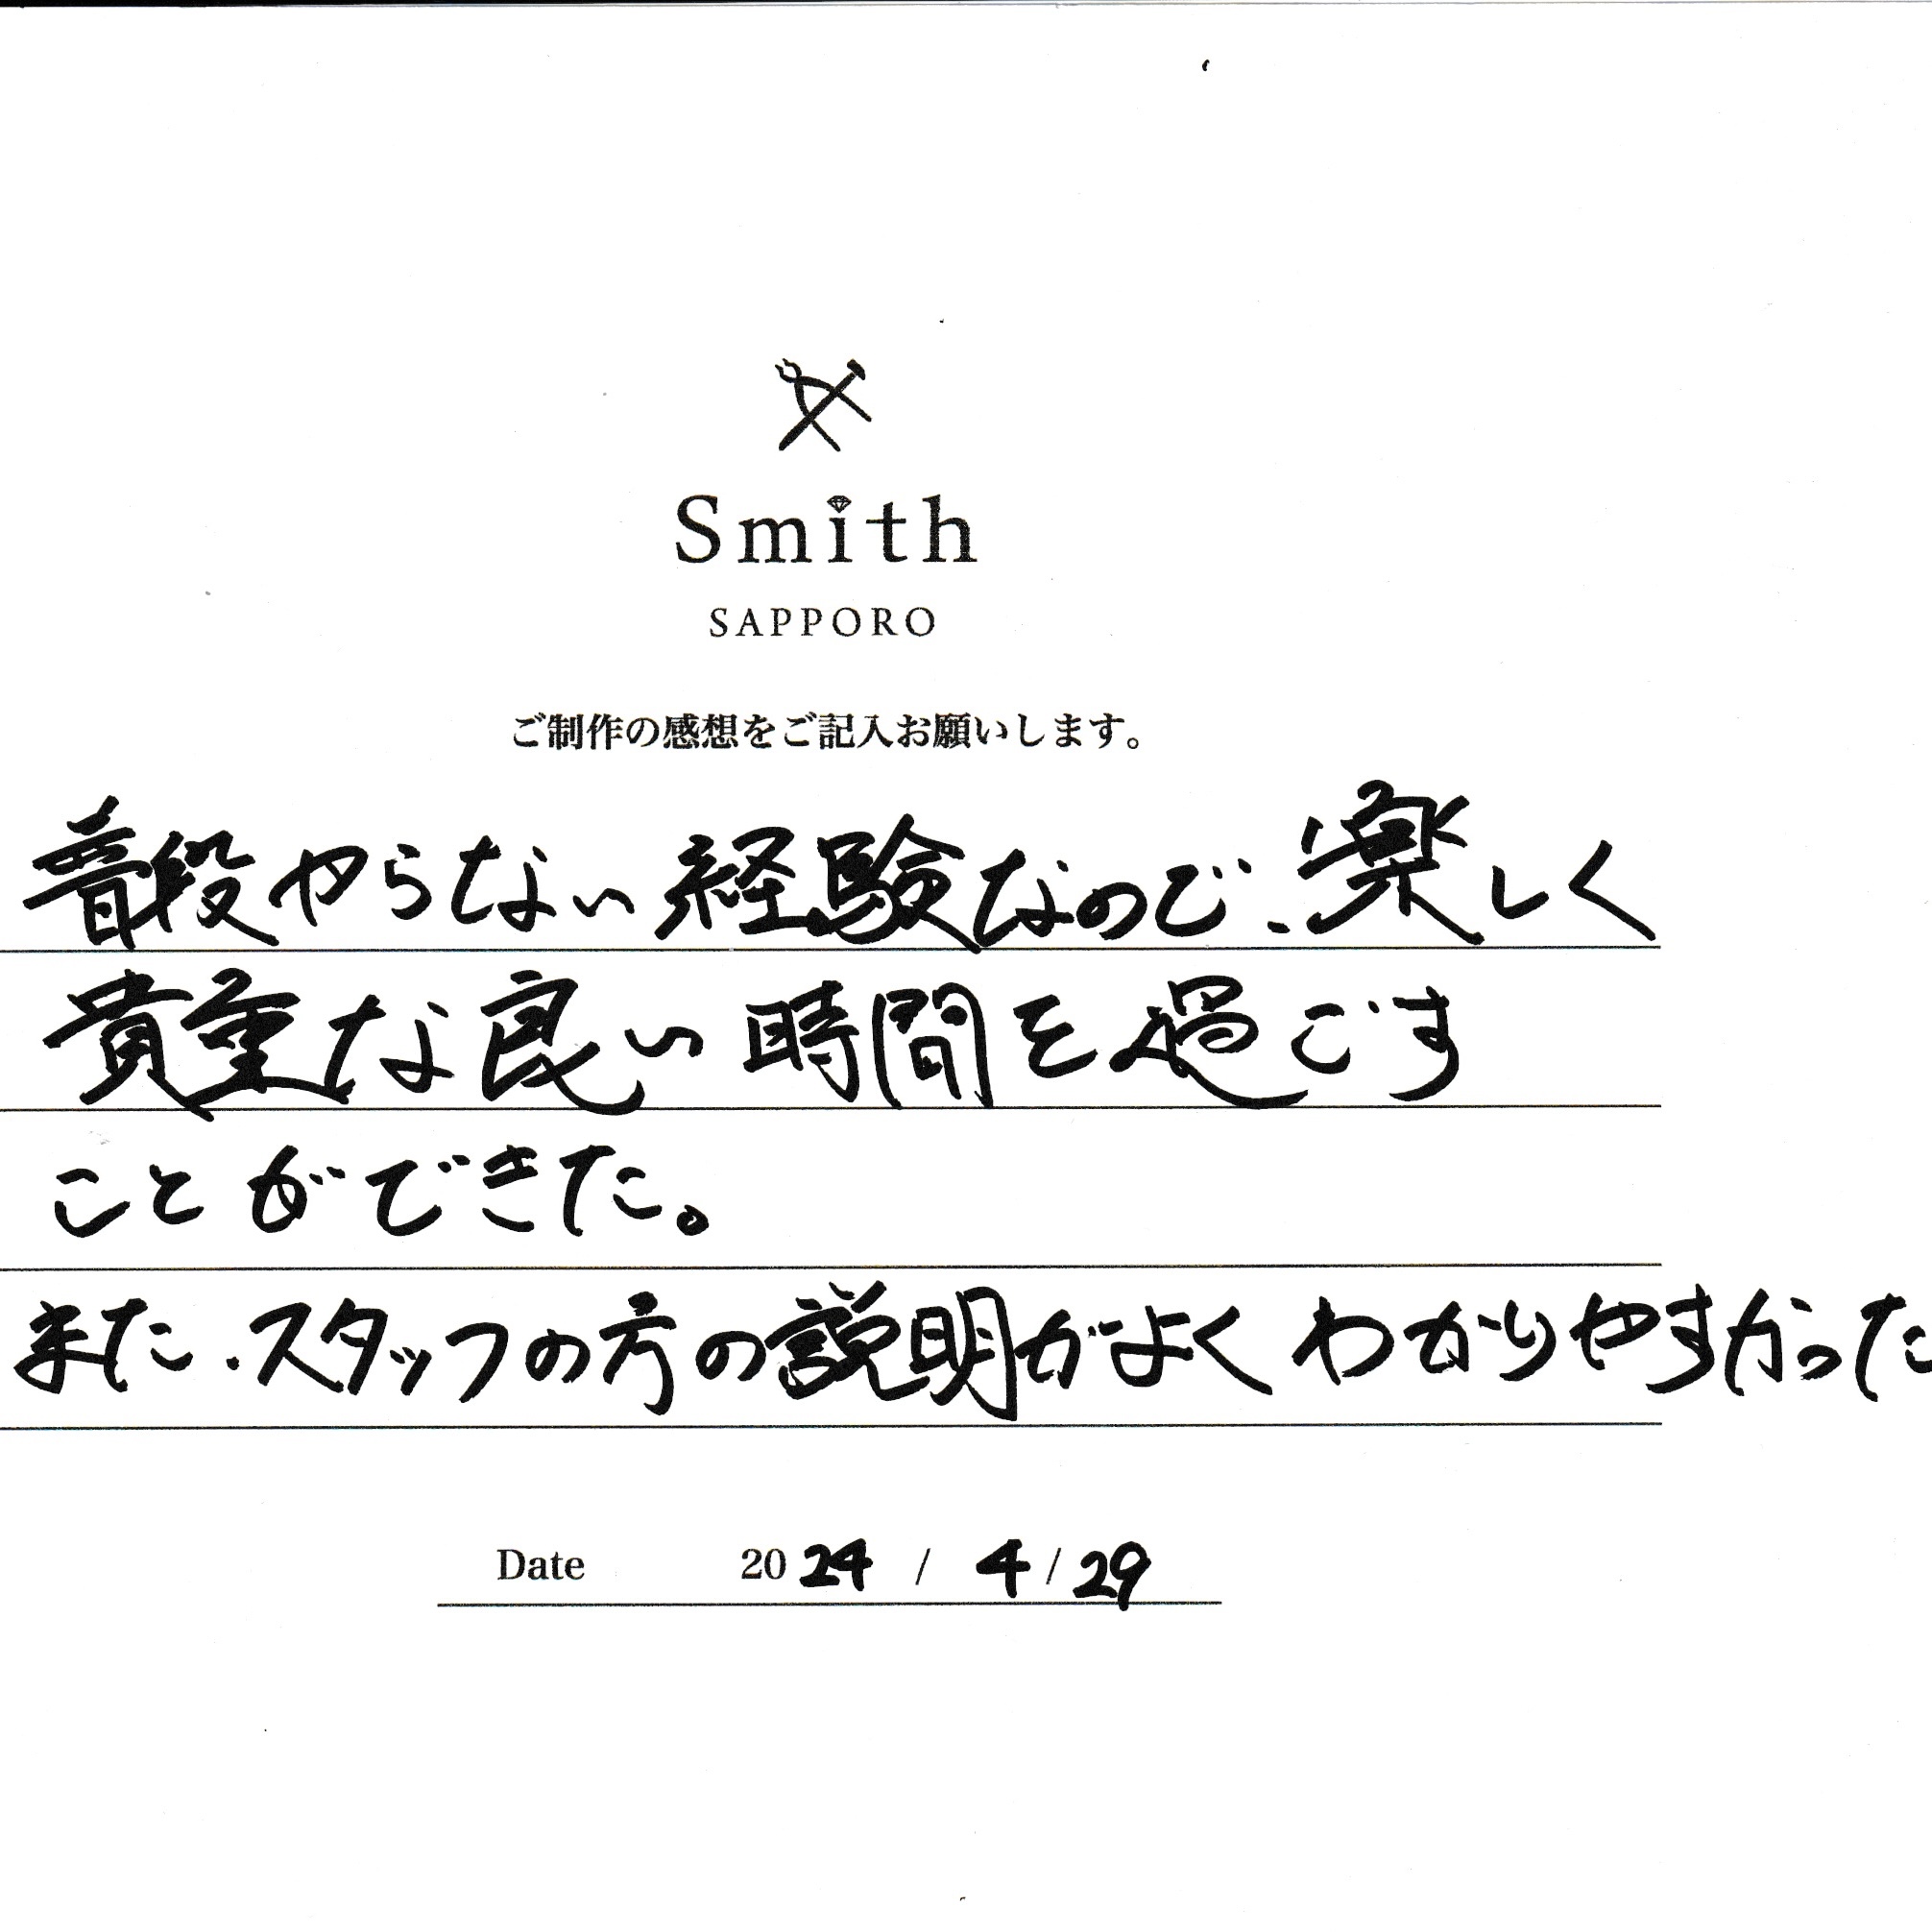 Smith
SAPPORO
ご制作の感想をご記入お願いします。
普段やらない経験なので、楽しく
貴重な良い時間を過ごす
ことができた。
また、スタッフの方の説明がよくわかりやすかった
Date 2024 / 4 / 29